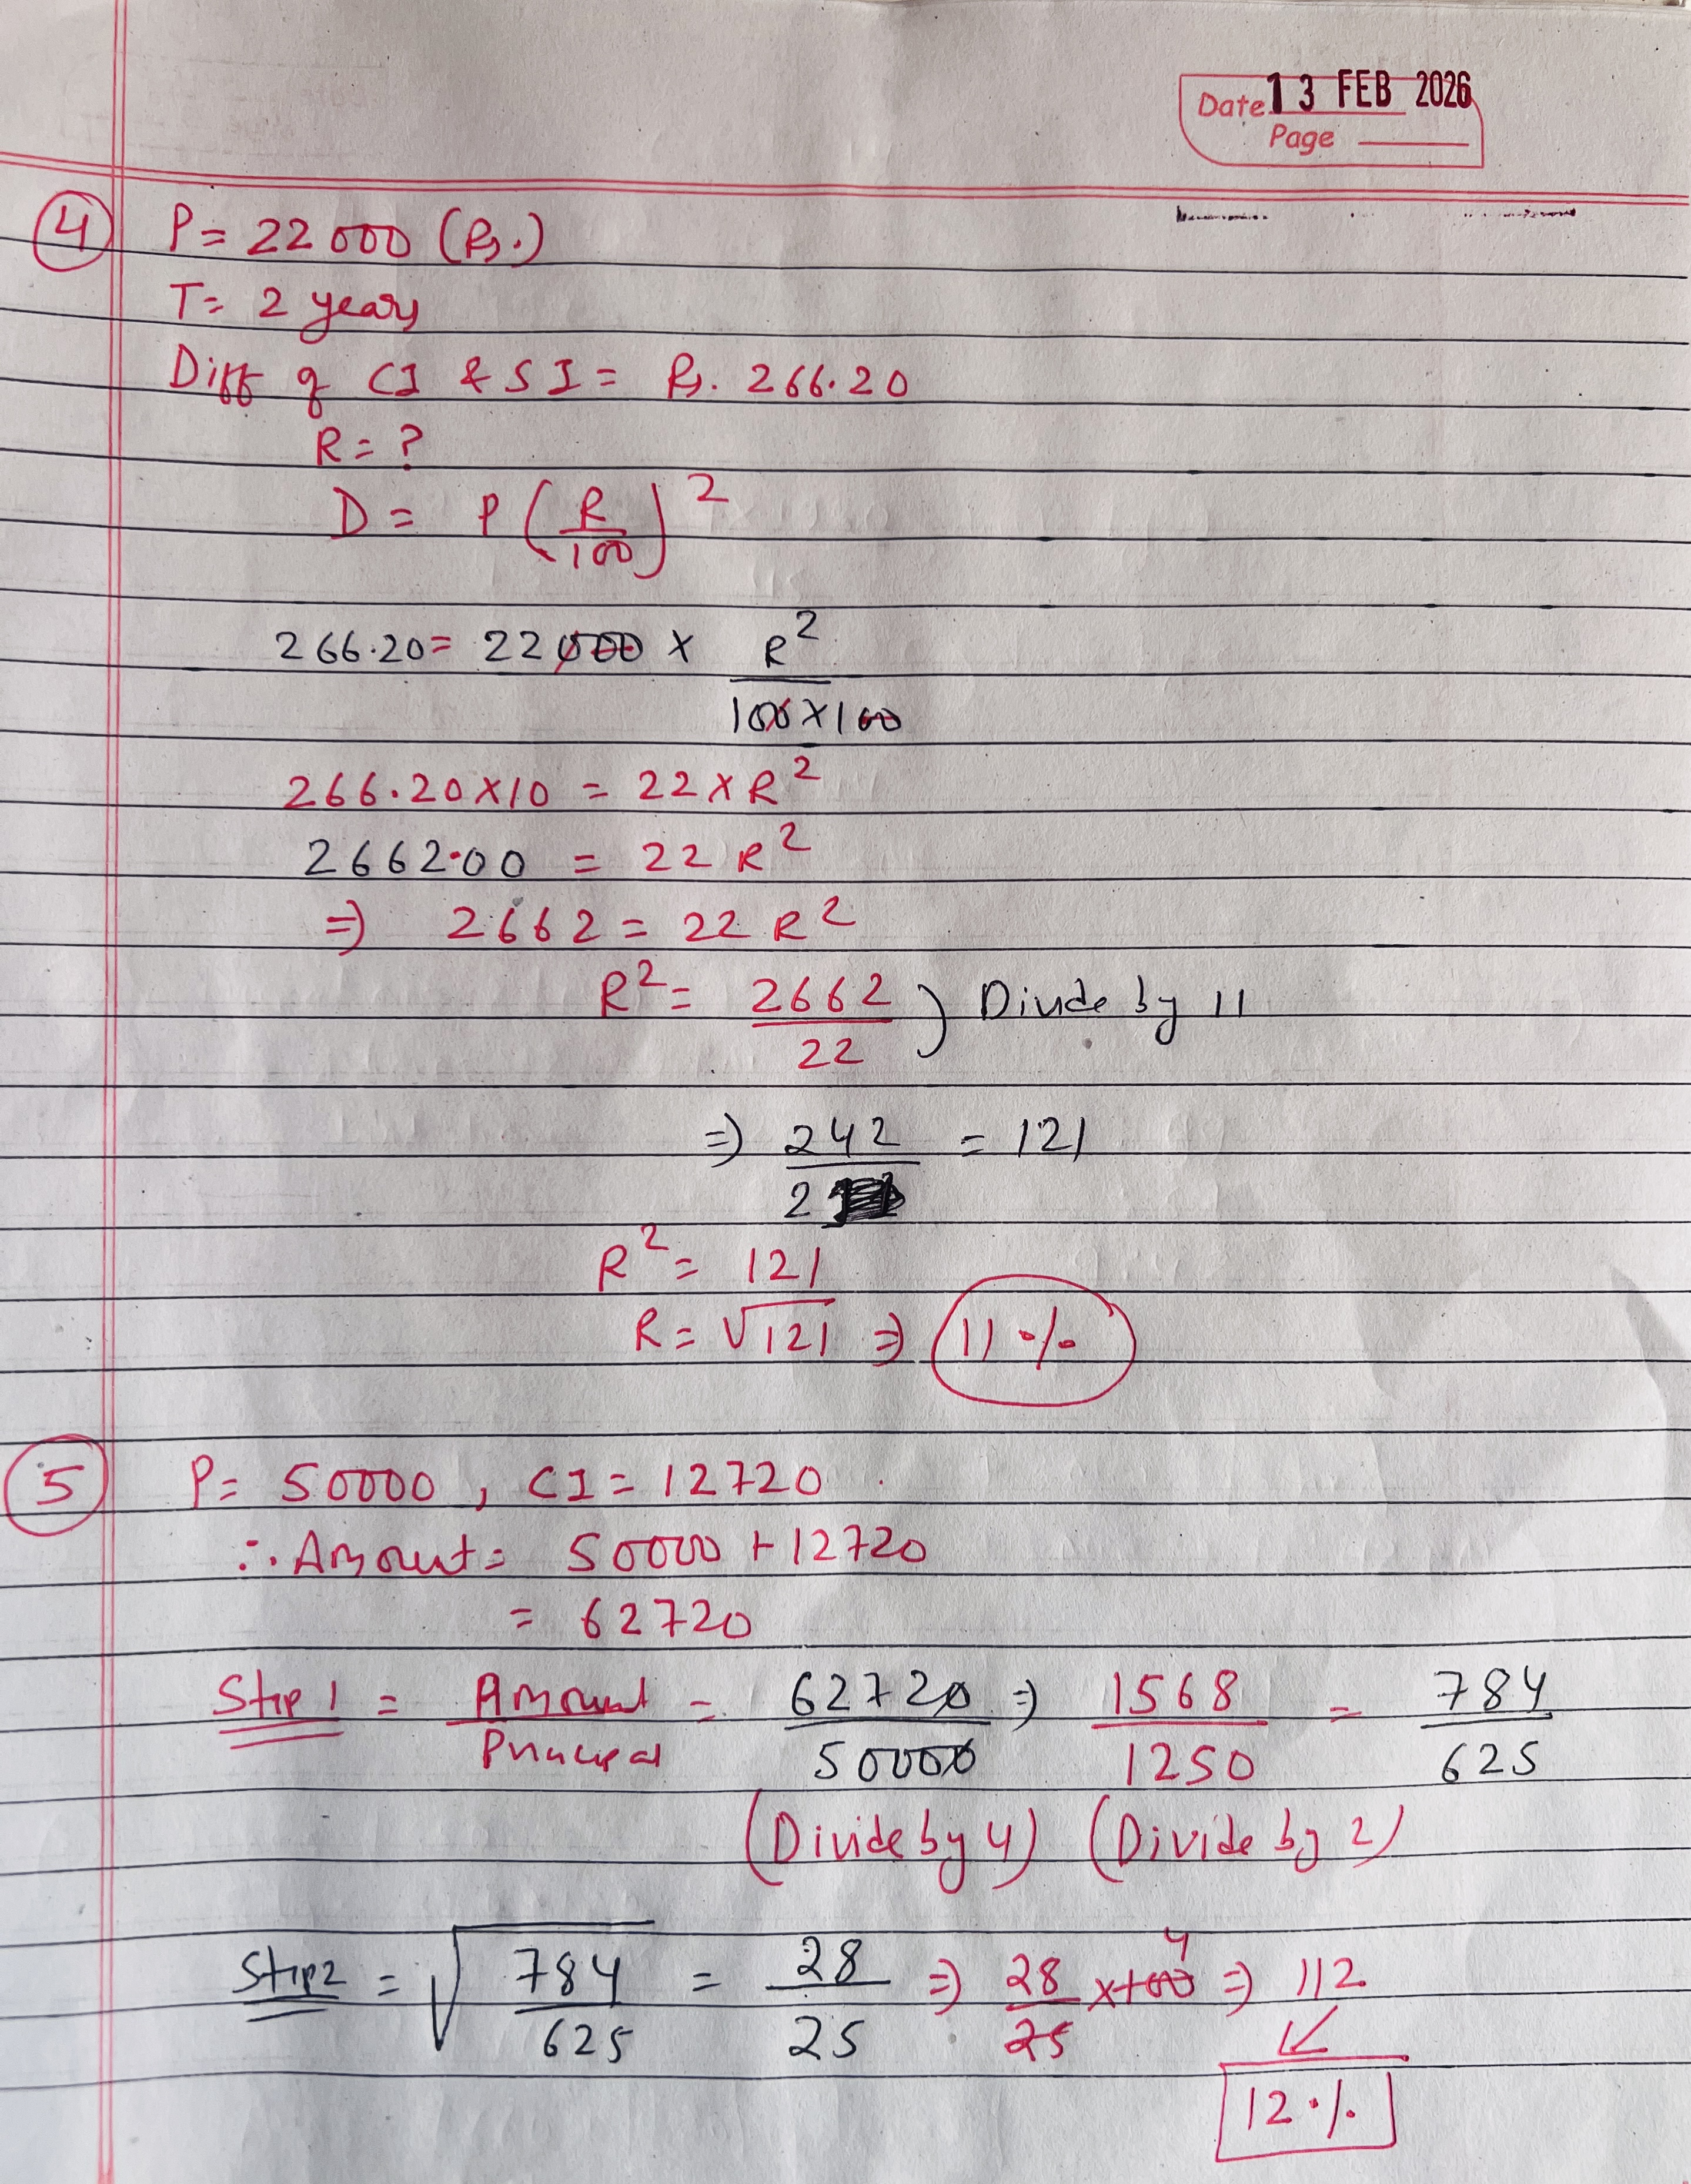 Date 13 FEB 2026
Page
4 P = 22000 (Rs.)
T = 2 years
Diff of CI & SI = Rs. 266.20
R = ?
D = P (R/100)²
266.20 = 22000 × R²/100×100
266.20×10 = 22×R²
2662.00 = 22 R²
⇒ 2662 = 22 R²
R² = 2662/22 ) Divide by 11
⇒ 242/2 = 121
R² = 121
R = √121 ⇒ 11 %
5 P = 50000, CI = 12720
∴ Amount = 50000 + 12720
= 62720
Step 1 = Amount/Principal = 62720/50000 ⇒ 1568/1250 = 784/625
(Divide by 4) (Divide by 2)
Step 2 = √784/625 = 28/25 ⇒ 28/25 ×100 4 ⇒ 112
↙
12 %